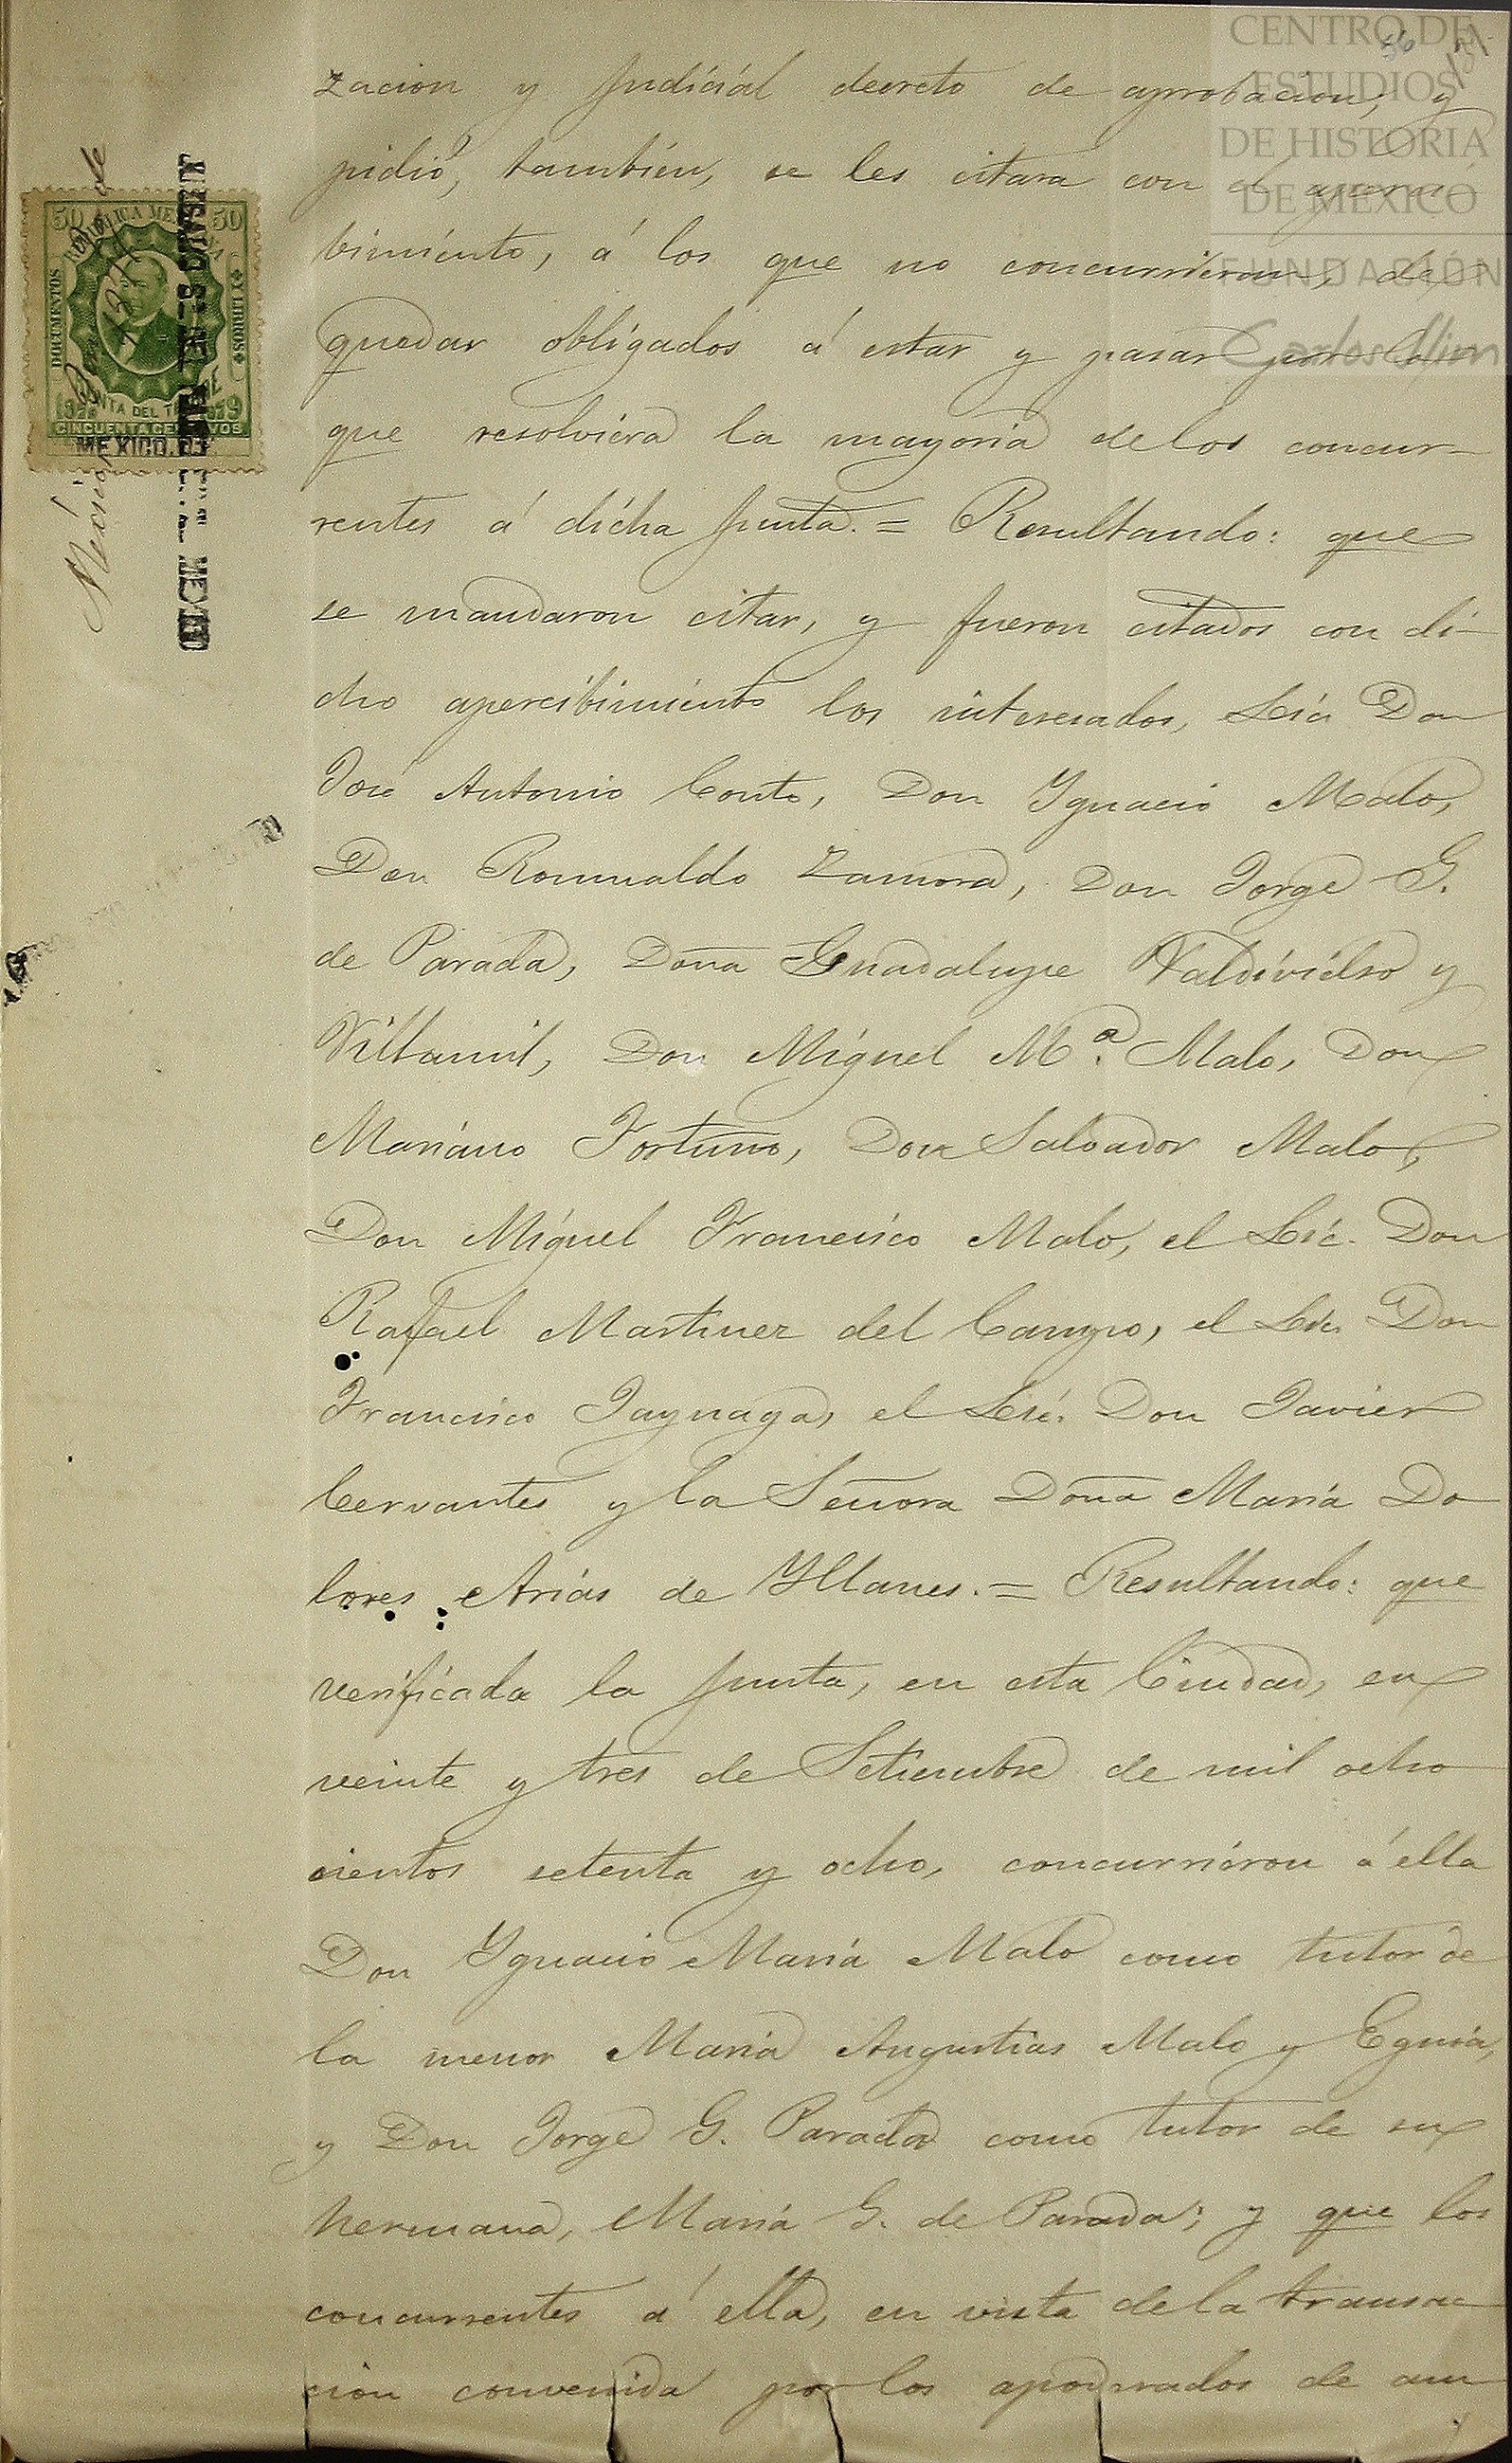 CENTRO DE
ESTUDIOS
DE HISTORIA
DE MÉXICO
FUNDACIÓN
Carlos Slim
56
zacion y judicial decreto de aprobacion, y
pidió, tambien, se les citara con el aperci-
bimiento, á los que no concurrieran, de
quedar obligados á estar y pasar por lo
que resolviera la mayoria de los concur-
rentes á dicha junta. = Resultando: que
se mandaron citar, y fueron citados con di-
cho apercibimiento los interesados, Lic. Don
José Antonio Couto, Don Ygnacio Malo,
Don Romualdo Zamora, Don Jorge G.
de Parada, Doña Guadalupe Valdivielso y
Villamil, Don Miguel Mª. Malo, Don
Mariano Fortuño, Don Salvador Malo,
Don Miguel Francisco Malo, el Lic. Don
Rafael Martinez del Campo, el Lic. Don
Francisco Jaynaga, el Lic. Don Javier
Cervantes y la Señora Doña Maria Do
lores Arias de Yllanes. = Resultando: que
verificada la junta, en esta Ciudad, en
veinte y tres de Setiembre de mil ocho
cientos setenta y ocho, concurriéron á ella
Don Ygnacio Maria Malo como tutor de
la menor Maria Angustias Malo y Eguia,
y Don Jorge G. Parada como tutor de su
hermana, Maria G. de Parada; y que los
concurrentes á ella, en vista de la transac
cion convenida por los apoderados de am
50 REPUBLICA MEXICANA 50
DOCUMENTOS Y LIBROS
RENTA DEL TIMBRE
CINCUENTA CENTAVOS
MEXICO. D.F.
MEXICO
México